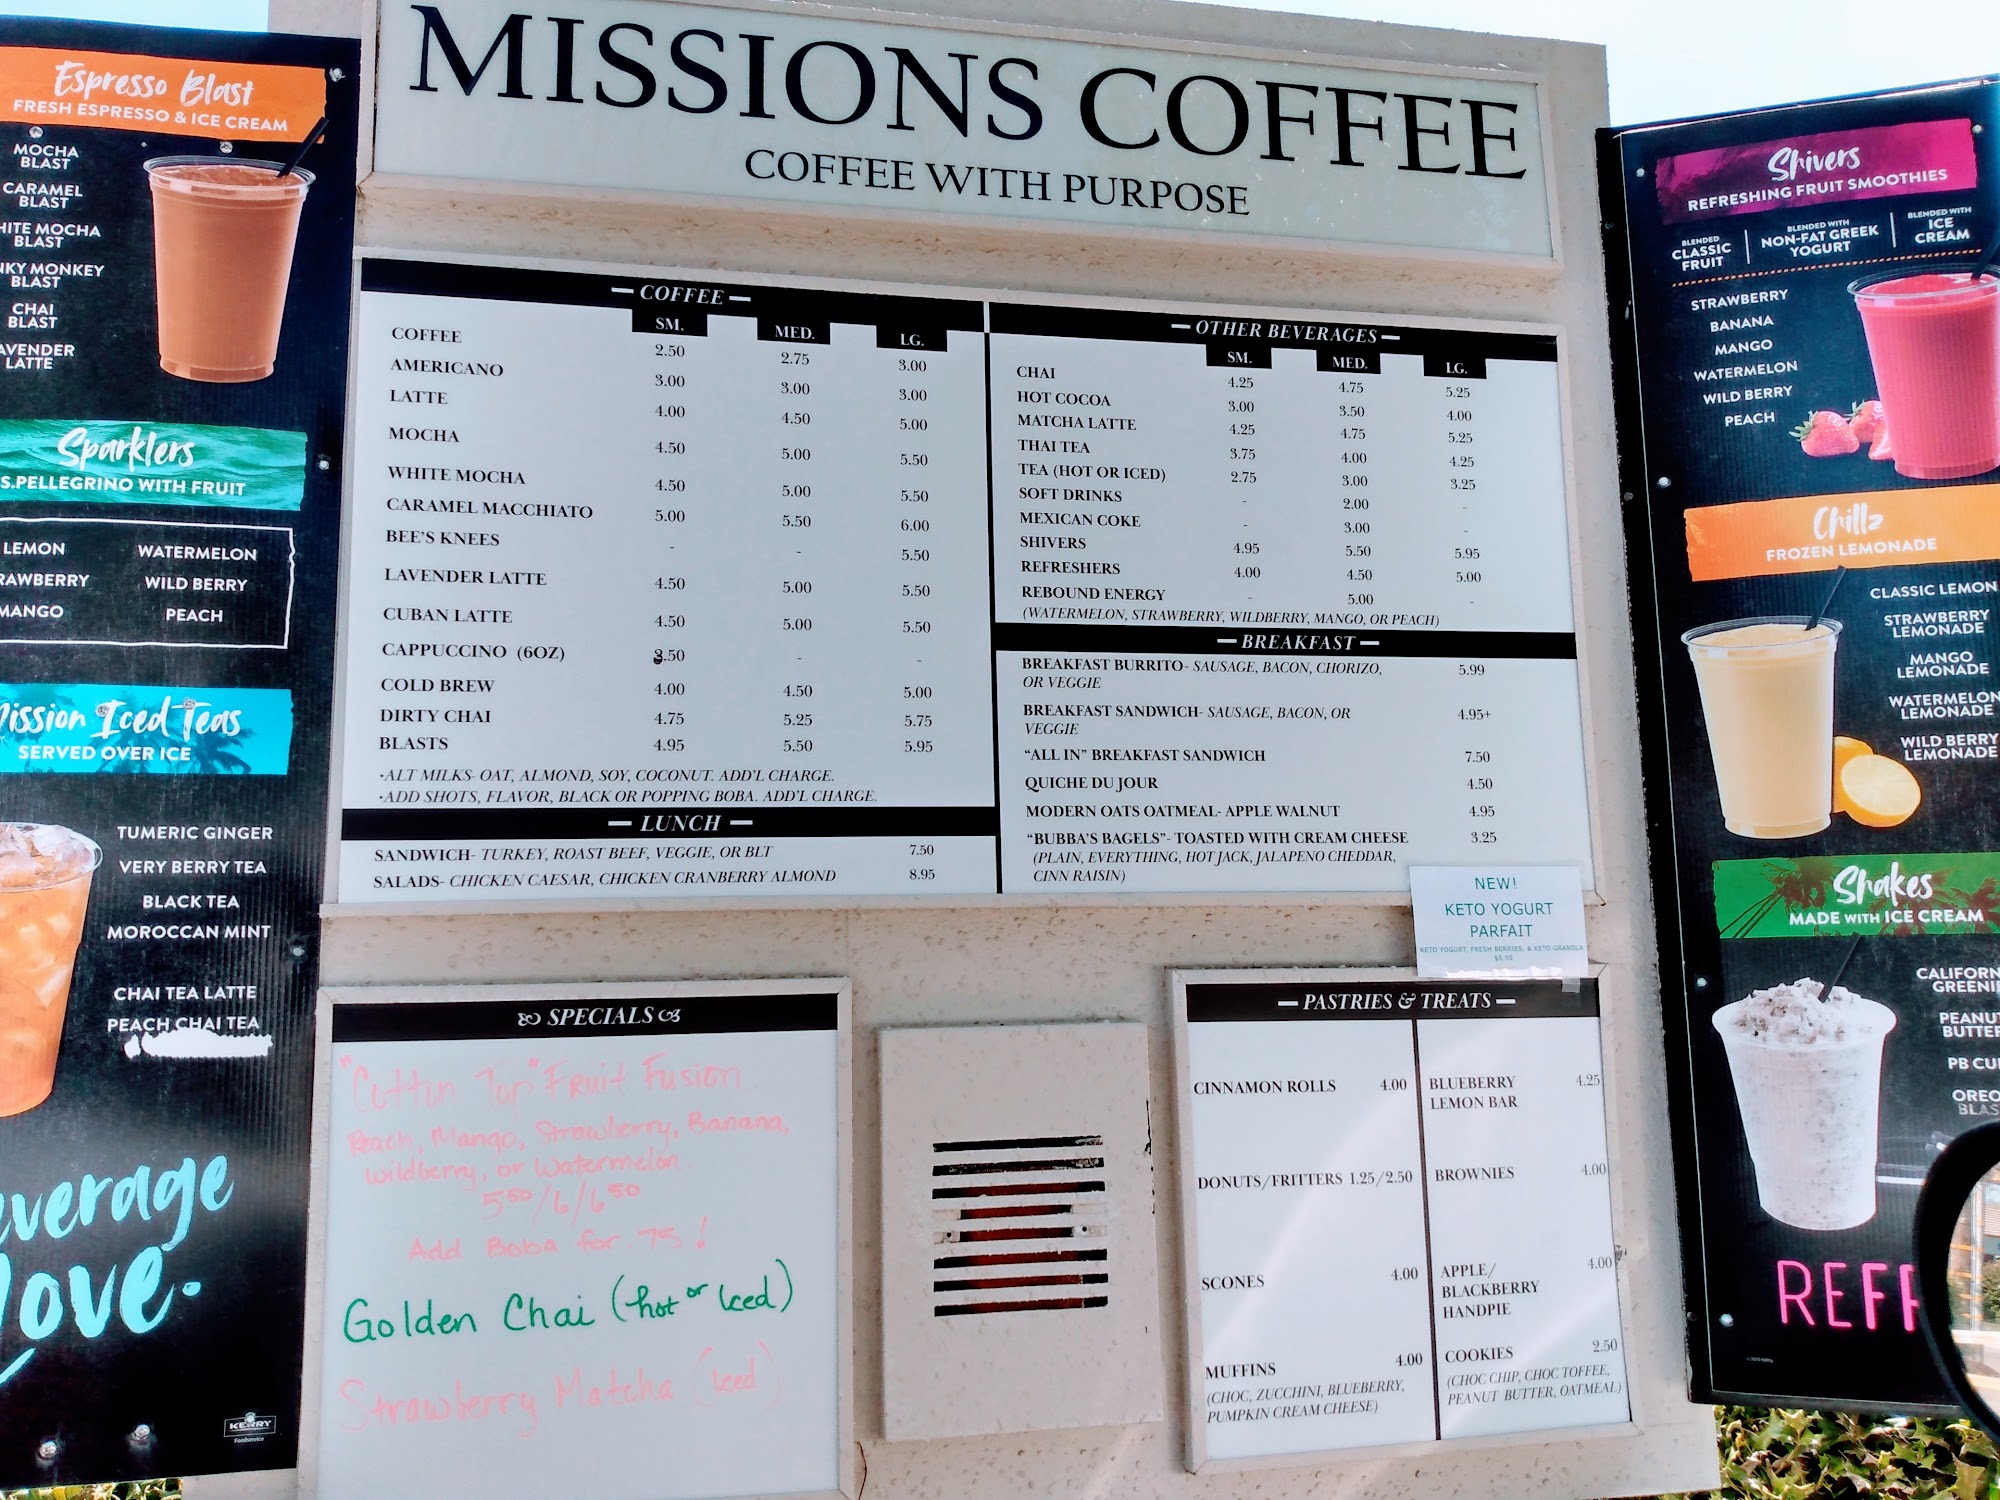 MISSIONS COFFEE
COFFEE WITH PURPOSE
Espresso Blast
FRESH ESPRESSO & ICE CREAM
MOCHA
BLAST
CARAMEL
BLAST
HITE MOCHA
BLAST
NKY MONKEY
BLAST
CHAI
BLAST
AVENDER
LATTE
Sparklers
S.PELLEGRINO WITH FRUIT
LEMON WATERMELON
RAWBERRY WILD BERRY
MANGO PEACH
ission Iced Teas
SERVED OVER ICE
TUMERIC GINGER
VERY BERRY TEA
BLACK TEA
MOROCCAN MINT
CHAI TEA LATTE
PEACH CHAI TEA
everage
love.
KERRY
Foodservice
COFFEE
SM. MED. LG.
COFFEE 2.50 2.75 3.00
AMERICANO 3.00 3.00 3.00
LATTE 4.00 4.50 5.00
MOCHA 4.50 5.00 5.50
WHITE MOCHA 4.50 5.00 5.50
CARAMEL MACCHIATO 5.00 5.50 6.00
BEE'S KNEES - - 5.50
LAVENDER LATTE 4.50 5.00 5.50
CUBAN LATTE 4.50 5.00 5.50
CAPPUCCINO (6OZ) 3.50 - -
COLD BREW 4.00 4.50 5.00
DIRTY CHAI 4.75 5.25 5.75
BLASTS 4.95 5.50 5.95
•ALT MILKS- OAT, ALMOND, SOY, COCONUT. ADD'L CHARGE.
•ADD SHOTS, FLAVOR, BLACK OR POPPING BOBA. ADD'L CHARGE.
LUNCH
SANDWICH- TURKEY, ROAST BEEF, VEGGIE, OR BLT 7.50
SALADS- CHICKEN CAESAR, CHICKEN CRANBERRY ALMOND 8.95
OTHER BEVERAGES
SM. MED. LG.
CHAI 4.25 4.75 5.25
HOT COCOA 3.00 3.50 4.00
MATCHA LATTE 4.25 4.75 5.25
THAI TEA 3.75 4.00 4.25
TEA (HOT OR ICED) 2.75 3.00 3.25
SOFT DRINKS - 2.00 -
MEXICAN COKE - 3.00
SHIVERS 4.95 5.50 5.95
REFRESHERS 4.00 4.50 5.00
REBOUND ENERGY - 5.00 -
(WATERMELON, STRAWBERRY, WILDBERRY, MANGO, OR PEACH)
BREAKFAST
BREAKFAST BURRITO- SAUSAGE, BACON, CHORIZO, 5.99
OR VEGGIE
BREAKFAST SANDWICH- SAUSAGE, BACON, OR 4.95+
VEGGIE
"ALL IN" BREAKFAST SANDWICH 7.50
QUICHE DU JOUR 4.50
MODERN OATS OATMEAL- APPLE WALNUT 4.95
"BUBBA'S BAGELS"- TOASTED WITH CREAM CHEESE 3.25
(PLAIN, EVERYTHING, HOT JACK, JALAPENO CHEDDAR,
CINN RAISIN)
NEW!
KETO YOGURT
PARFAIT
KETO YOGURT, FRESH BERRIES, & KETO GRANOLA
$5.95
SPECIALS
"Cotton Top" Fruit Fusion
Peach, Mango, Strawberry, Banana,
Wildberry, or Watermelon.
5⁵⁰/6/6⁵⁰
Add Boba for .75!
Golden Chai (hot or Iced)
Strawberry Matcha (Iced)
PASTRIES & TREATS
CINNAMON ROLLS 4.00
DONUTS/FRITTERS 1.25/2.50
SCONES 4.00
MUFFINS 4.00
(CHOC, ZUCCHINI, BLUEBERRY,
PUMPKIN CREAM CHEESE)
BLUEBERRY 4.25
LEMON BAR
BROWNIES 4.00
APPLE/ 4.00
BLACKBERRY
HANDPIE
COOKIES 2.50
(CHOC CHIP, CHOC TOFFEE,
PEANUT BUTTER, OATMEAL)
Shivers
REFRESHING FRUIT SMOOTHIES
BLENDED
CLASSIC
FRUIT
BLENDED WITH
NON-FAT GREEK
YOGURT
BLENDED WITH
ICE
CREAM
STRAWBERRY
BANANA
MANGO
WATERMELON
WILD BERRY
PEACH
Chillz
FROZEN LEMONADE
CLASSIC LEMON
STRAWBERRY
LEMONADE
MANGO
LEMONADE
WATERMELON
LEMONADE
WILD BERRY
LEMONADE
Shakes
MADE WITH ICE CREAM
CALIFORN
GREENI
PEANUT
BUTTER
PB CU
OREO
BLAS
REFR